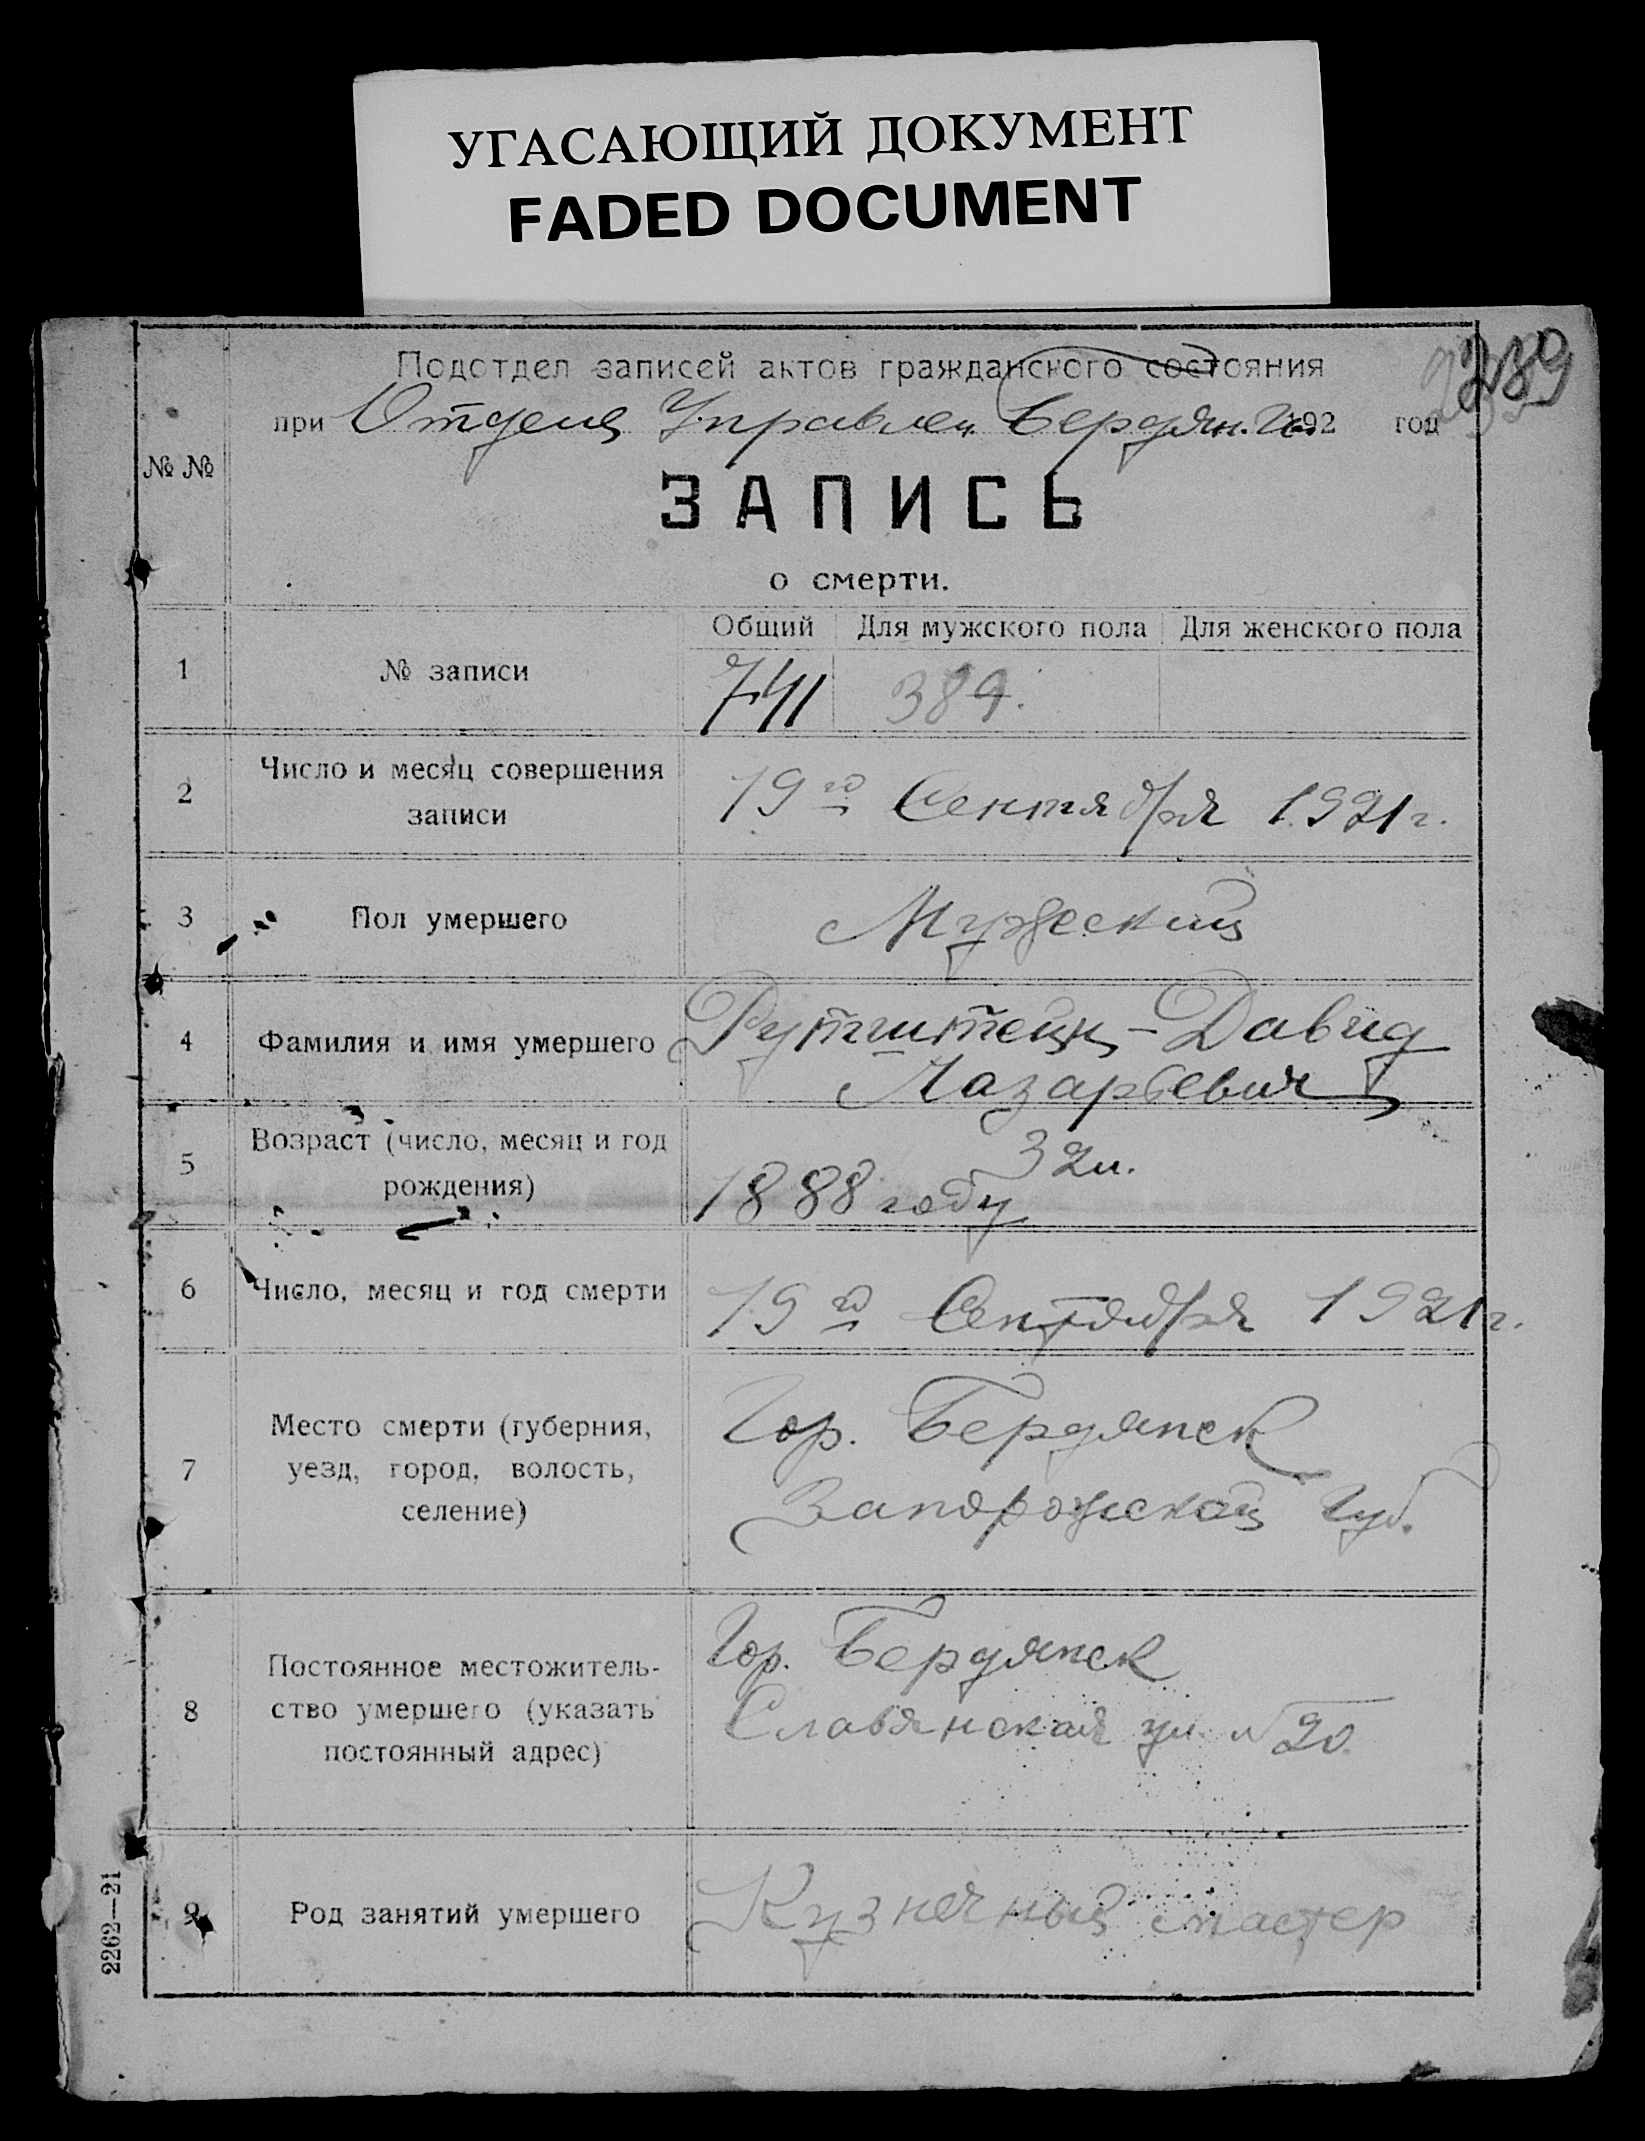 УГАСАЮЩИЙ ДОКУМЕНТ
FADED DOCUMENT
Подотдел записей актов гражданского состояния
при Отделе Управлен. Бердян. 192 год
№ №
ЗАПИСЬ
о смерти.
Общий Для мужского пола Для женского пола
1 № записи 741 389.
2 Число и месяц совершения
записи
19го Сентября 1921 г.
3 Пол умершего Мужеский
4 Фамилия и имя умершего Рутштейн - Давид
Лазарьевич
5 Возраст (число, месяц и год
рождения)
32 л.
1888 году
6 Число, месяц и год смерти 19го Сентября 1921 г.
7 Место смерти (губерния,
уезд, город, волость,
селение)
Гор. Бердянск
Запорожской Губ.
8 Постоянное местожитель-
ство умершего (указать
постоянный адрес)
Гор. Бердянск
Славянская ул. №20.
9 Род занятий умершего Кузнечный мастер
2262—21